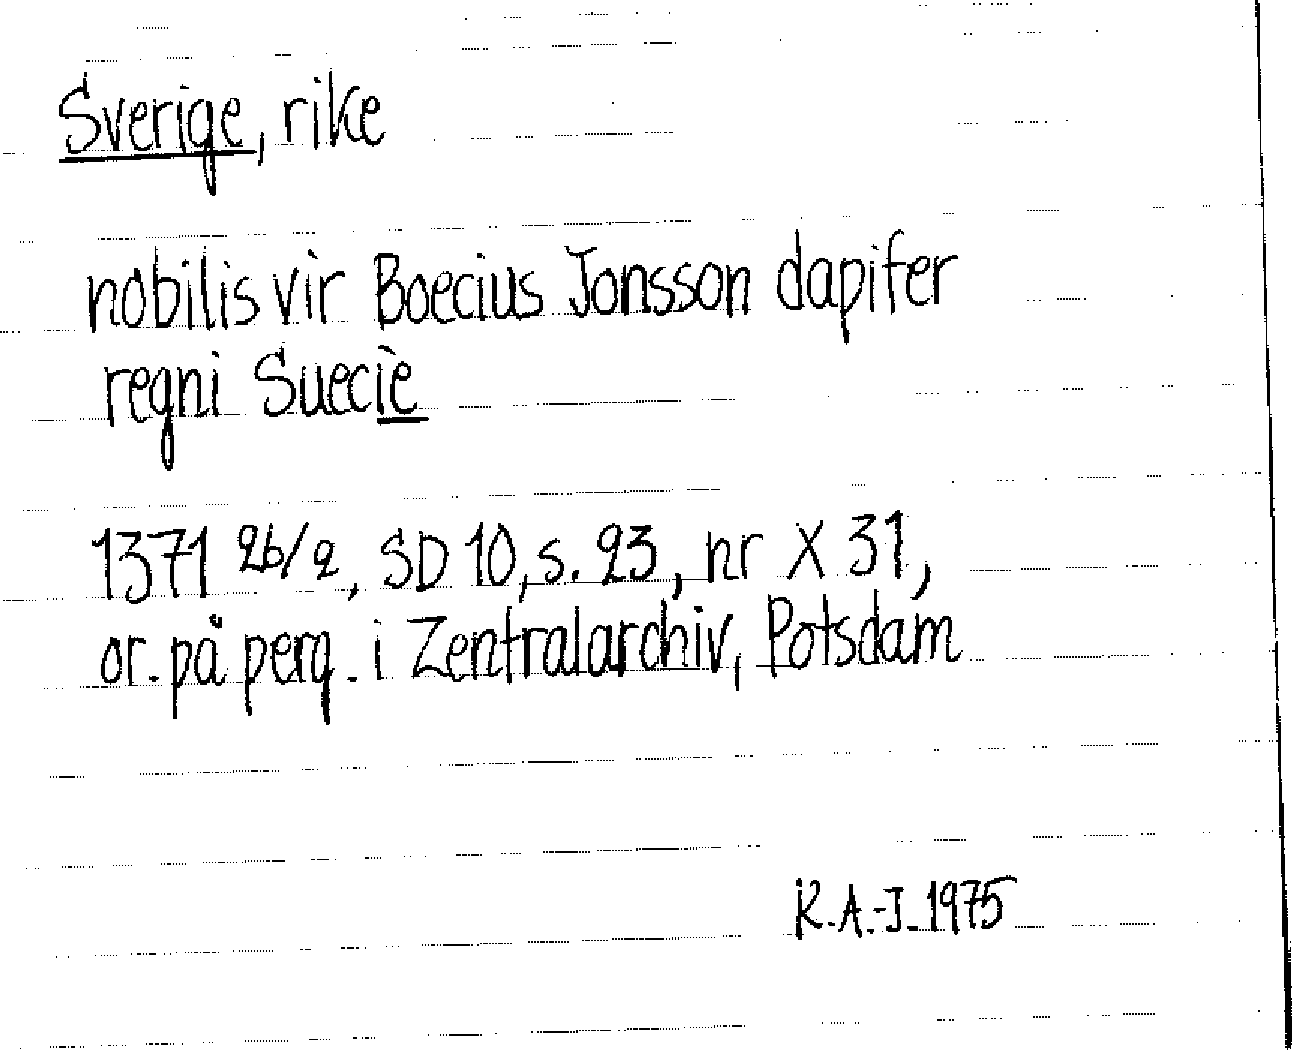 Sverige, rike
nobilis vir Boecius Jonsson dapifer
regni Suecie
1371 26/2, SD 10, s. 23, nr X 31,
or. på perg. i Zentralarchiv, Potsdam
R.A.-J. 1975